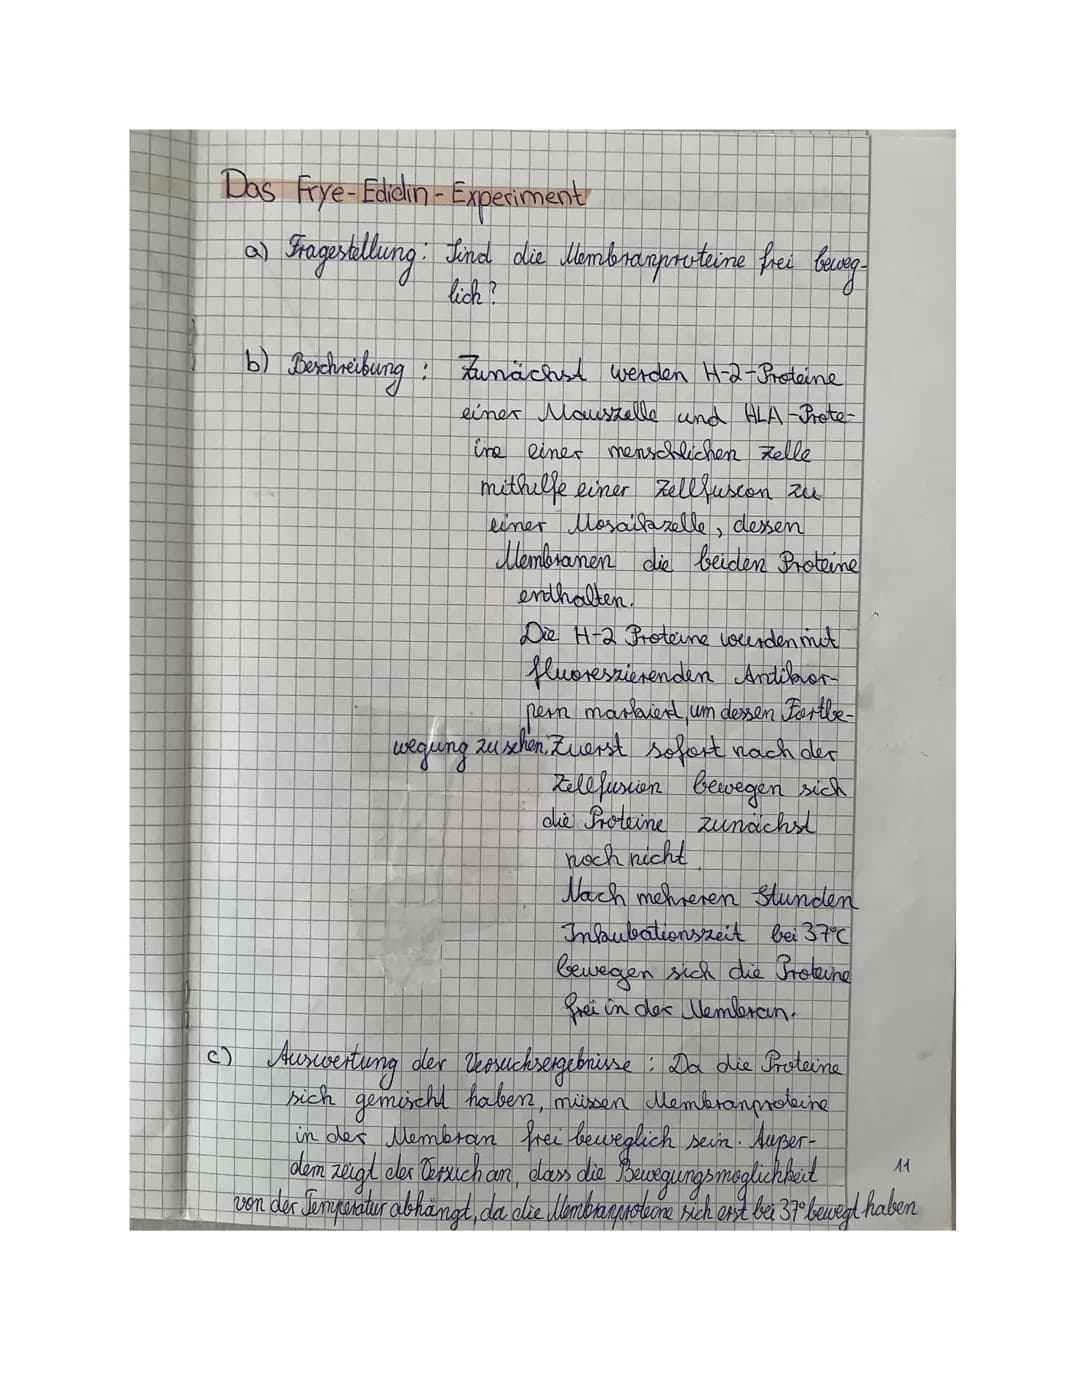 Das Frye-Edidin-Experiment
a) Fragestellung: Sind die Membranproteine frei beweg-
lich?
b) Beschreibung: Zunächst werden H-2-Proteine
einer Mauszelle und HLA-Prote-
ine einer menschlichen Zelle
mithilfe einer Zellfusion zu
einer Mosaikzelle, dessen
Membranen die beiden Proteine
enthalten.
Die H-2 Proteine wurden mit
fluoreszierenden Antikör-
pern markiert, um dessen Fortbe-
wegung zu sehen. Zuerst sofort nach der
Zellfusion bewegen sich
die Proteine zunächst
noch nicht.
Nach mehreren Stunden
Inkubationszeit bei 37°C
bewegen sich die Proteine
frei in der Membran.
c) Auswertung der Versuchsergebnisse: Da die Proteine
sich gemischt haben, müssen Membranproteine
in der Membran frei beweglich sein. Außer-
dem zeigt der Versuch an, dass die Bewegungsmöglichkeit
11
von der Temperatur abhängt, da die Membranproteine sich erst bei 37° bewegt haben